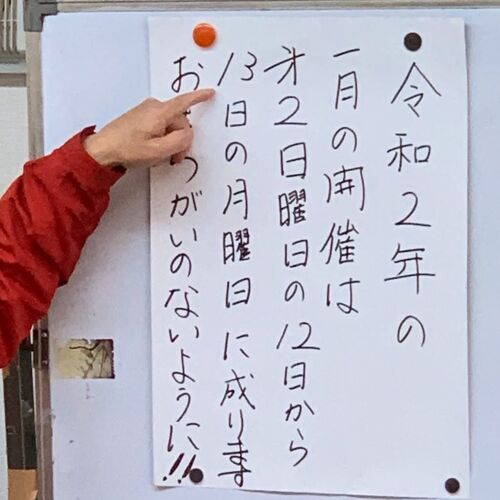 令和2年の
一月の開催は
才2日曜日の12日から
13日の月曜日に成ります
おまつがいのないように!!